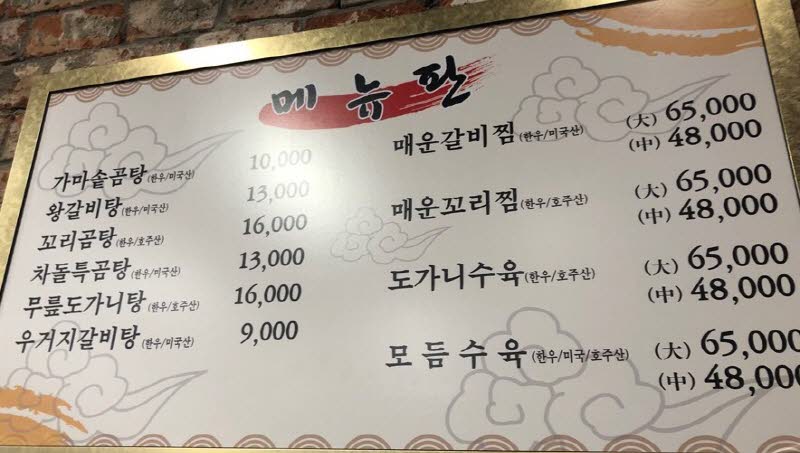 메뉴판
가마솥곰탕(한우/미국산) 10,000
왕갈비탕(한우/미국산) 13,000
꼬리곰탕(한우/호주산) 16,000
차돌특곰탕(한우/미국산) 13,000
무릎도가니탕(한우/호주산) 16,000
우거지갈비탕(한우/미국산) 9,000
매운갈비찜(한우/미국산) (大) 65,000
(中) 48,000
매운꼬리찜(한우/호주산) (大) 65,000
(中) 48,000
도가니수육(한우/호주산) (大) 65,000
(中) 48,000
모듬수육(한우/미국/호주산) (大) 65,000
(中) 48,000